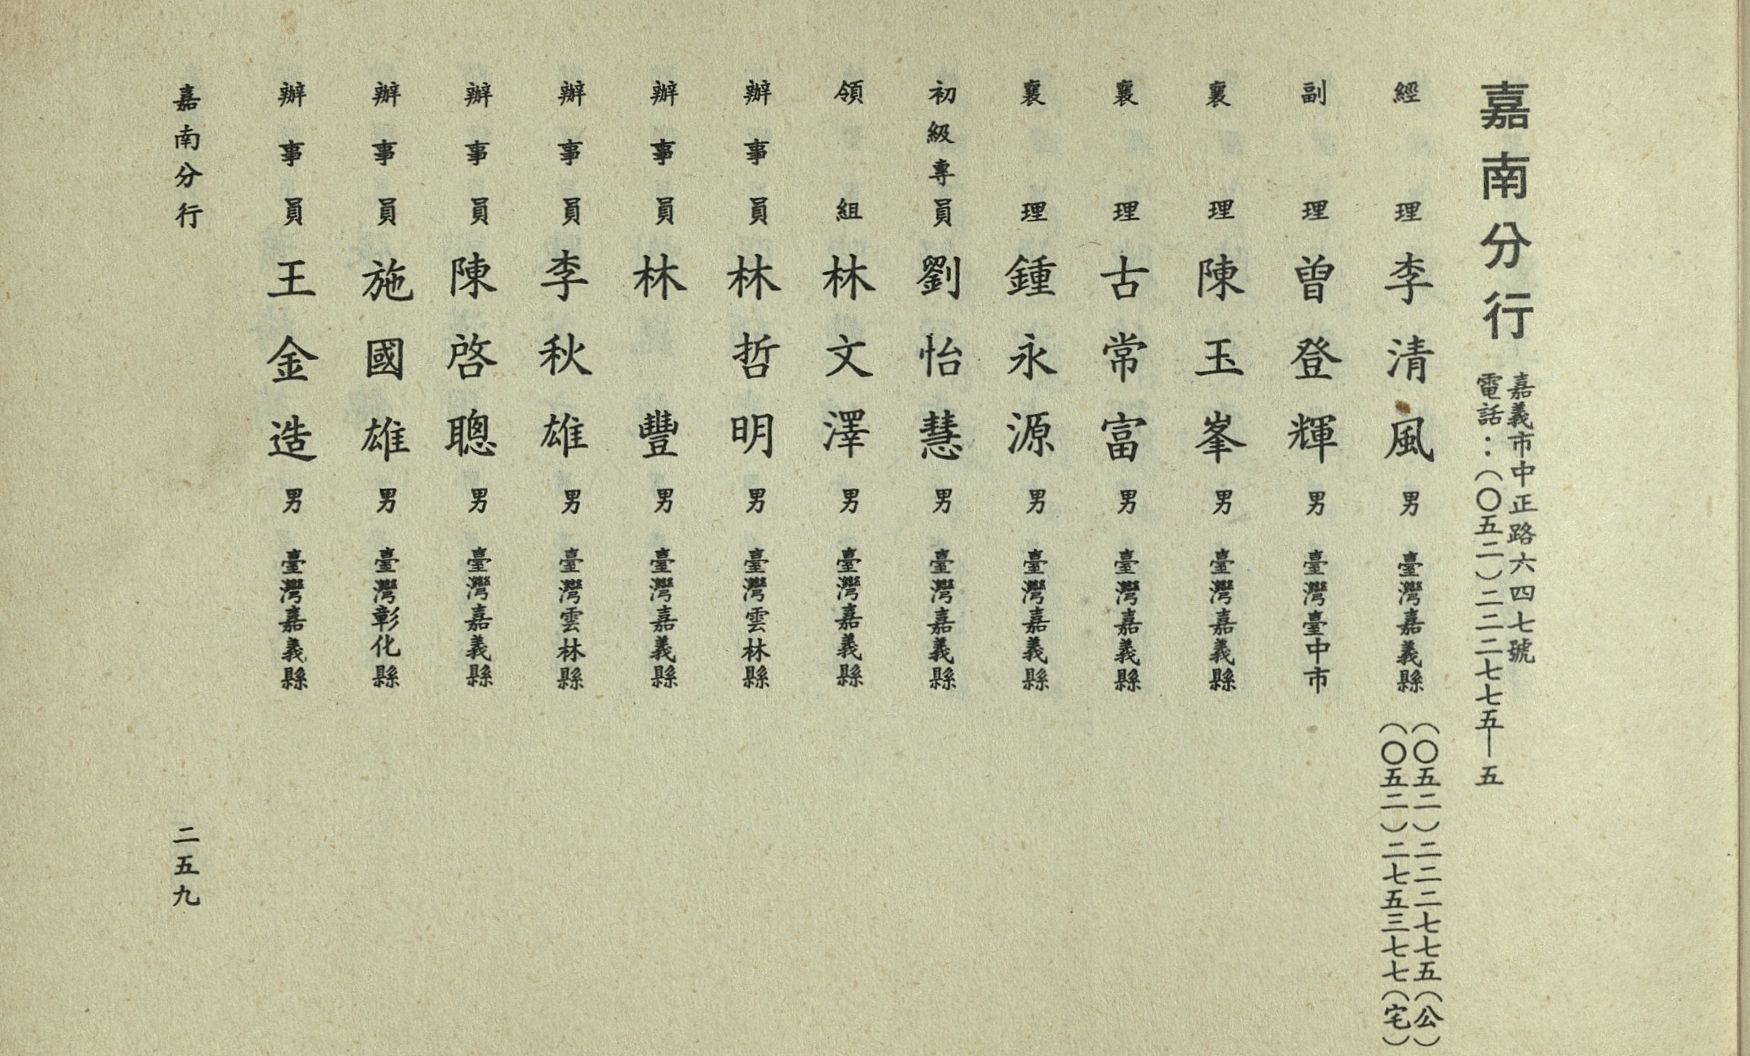 嘉南分行
嘉義市中正路六四七號
電話：（〇五二）二二二七七五—五
經理 李清風 男 臺灣嘉義縣
（〇五二）二二二七七五（公）
（〇五二）二七五三七七（宅）
副理 曾登輝 男 臺灣臺中市
襄理 陳玉峯 男 臺灣嘉義縣
襄理 古常富 男 臺灣嘉義縣
襄理 鍾永源 男 臺灣嘉義縣
初級專員 劉怡慧 男 臺灣嘉義縣
領組 林文澤 男 臺灣嘉義縣
辦事員 林哲明 男 臺灣雲林縣
辦事員 林豐 男 臺灣嘉義縣
辦事員 李秋雄 男 臺灣雲林縣
辦事員 陳啓聰 男 臺灣嘉義縣
辦事員 施國雄 男 臺灣彰化縣
辦事員 王金造 男 臺灣嘉義縣
嘉南分行
二五九